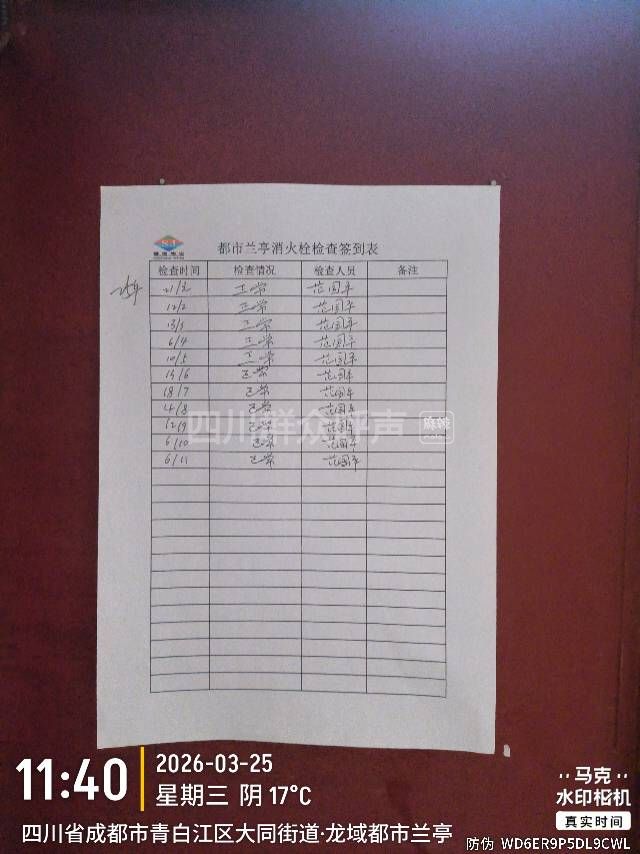 都市兰亭消火栓检查签到表
检查时间 检查情况 检查人员 备注
25年
正常 范国平
12/2 正常 范国平
13/3 正常 范国平
6/4 正常 范国平
10/5 正常 范国平
13/6 正常 范国平
18/7 正常 范国平
4/8 正常 范国平
12/9 正常 范国平
6/10 正常 范国平
6/11 正常 范国平
四川群众呼声
麻辣
11:40
2026-03-25
星期三 阴 17°C
四川省成都市青白江区大同街道·龙域都市兰亭
马克
水印相机
真实时间
防伪 WD6ER9P5DL9CWL